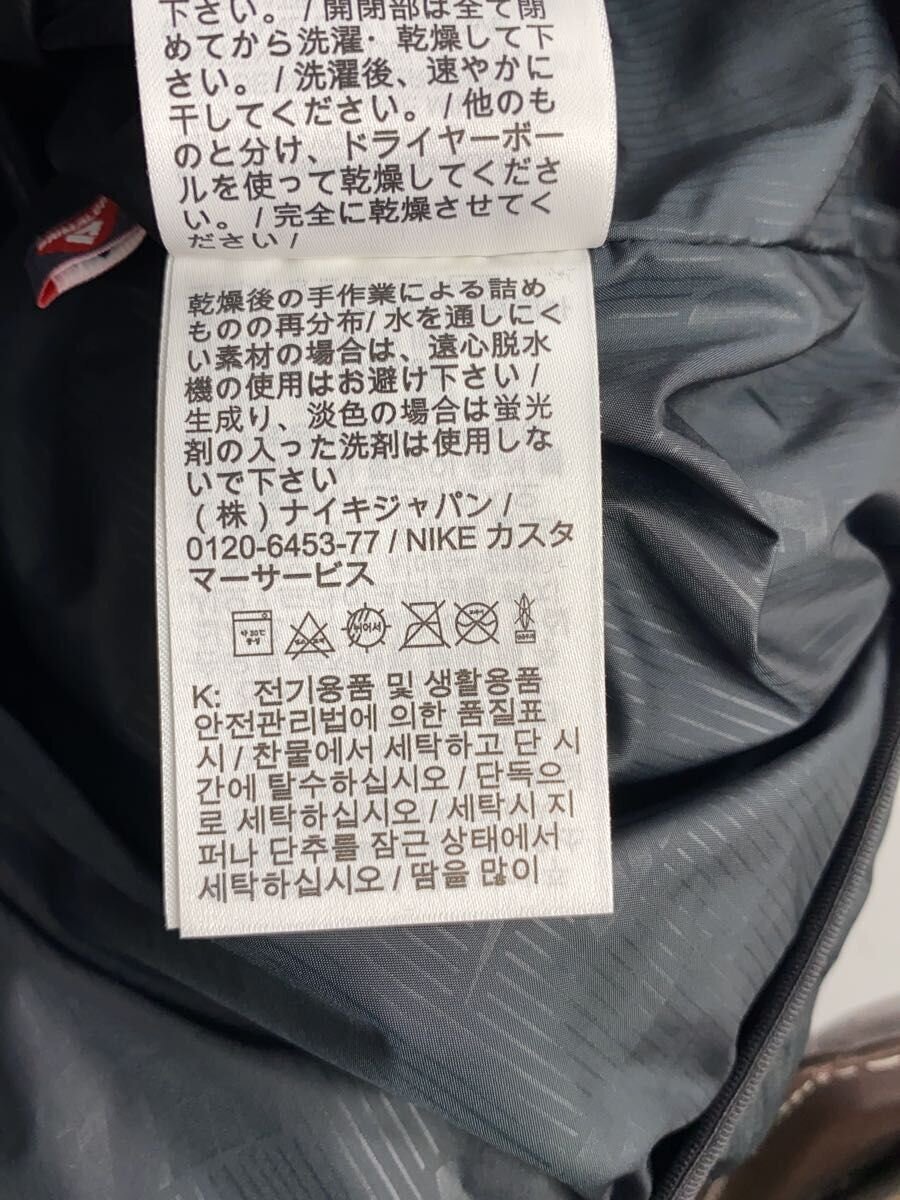 下さい。/ 開閉部は全て閉
めてから洗濯・乾燥して下
さい。/ 洗濯後、速やかに
干してください。/ 他のも
のと分け、ドライヤーボー
ルを使って乾燥してくださ
い。/ 完全に乾燥させてく
ださい /
乾燥後の手作業による詰め
ものの再分布/ 水を通しにく
い素材の場合は、遠心脱水
機の使用はお避け下さい /
生成り、淡色の場合は蛍光
剤の入った洗剤は使用しな
いで下さい
(株) ナイキジャパン /
0120-6453-77 / NIKE カスタ
マーサービス
약 30℃
중성
뉘어서
K: 전기용품 및 생활용품
안전관리법에 의한 품질표
시 / 찬물에서 세탁하고 단 시
간에 탈수하십시오 / 단독으
로 세탁하십시오 / 세탁시 지
퍼나 단추를 잠근 상태에서
세탁하십시오 / 땀을 많이